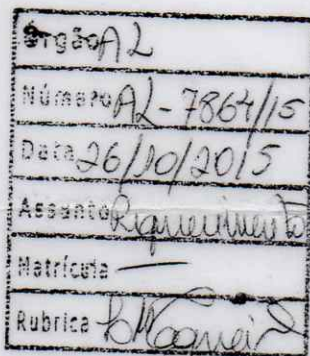 Órgão AL
Número AL-7864/15
Data 26/10/2015
Assunto Requerimento
Matrícula —
Rubrica